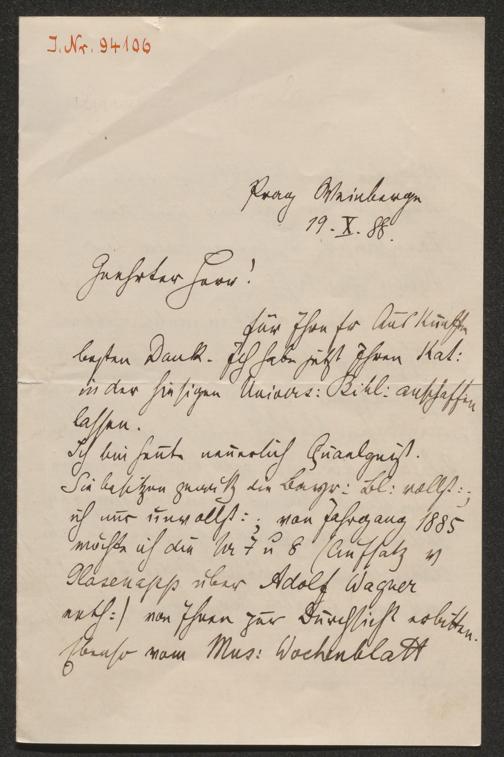 J. Nr. 94106
Prag Weinberge
19. X. 88.
Geehrter Herr!
für Ihre fr Auskünfte
besten Dank. Ich habe jetzt Ihren Kat:
in der hiesigen Univers: Bibl: anschaffen
lassen.
Ich bin heute neuerlich Quaelgeist.
Sie besitzen gewiß die Bayr: Bl: vollst:;
ich nur unvollst:; von Jahrgang 1885
möchte ich die Nr 7 u 8 (Aufsatz v
Glasenapp über Adolf Wagner
enth:) von Ihnen zur Durchsicht erbitten.
Ebenso vom Mus: Wochenblatt